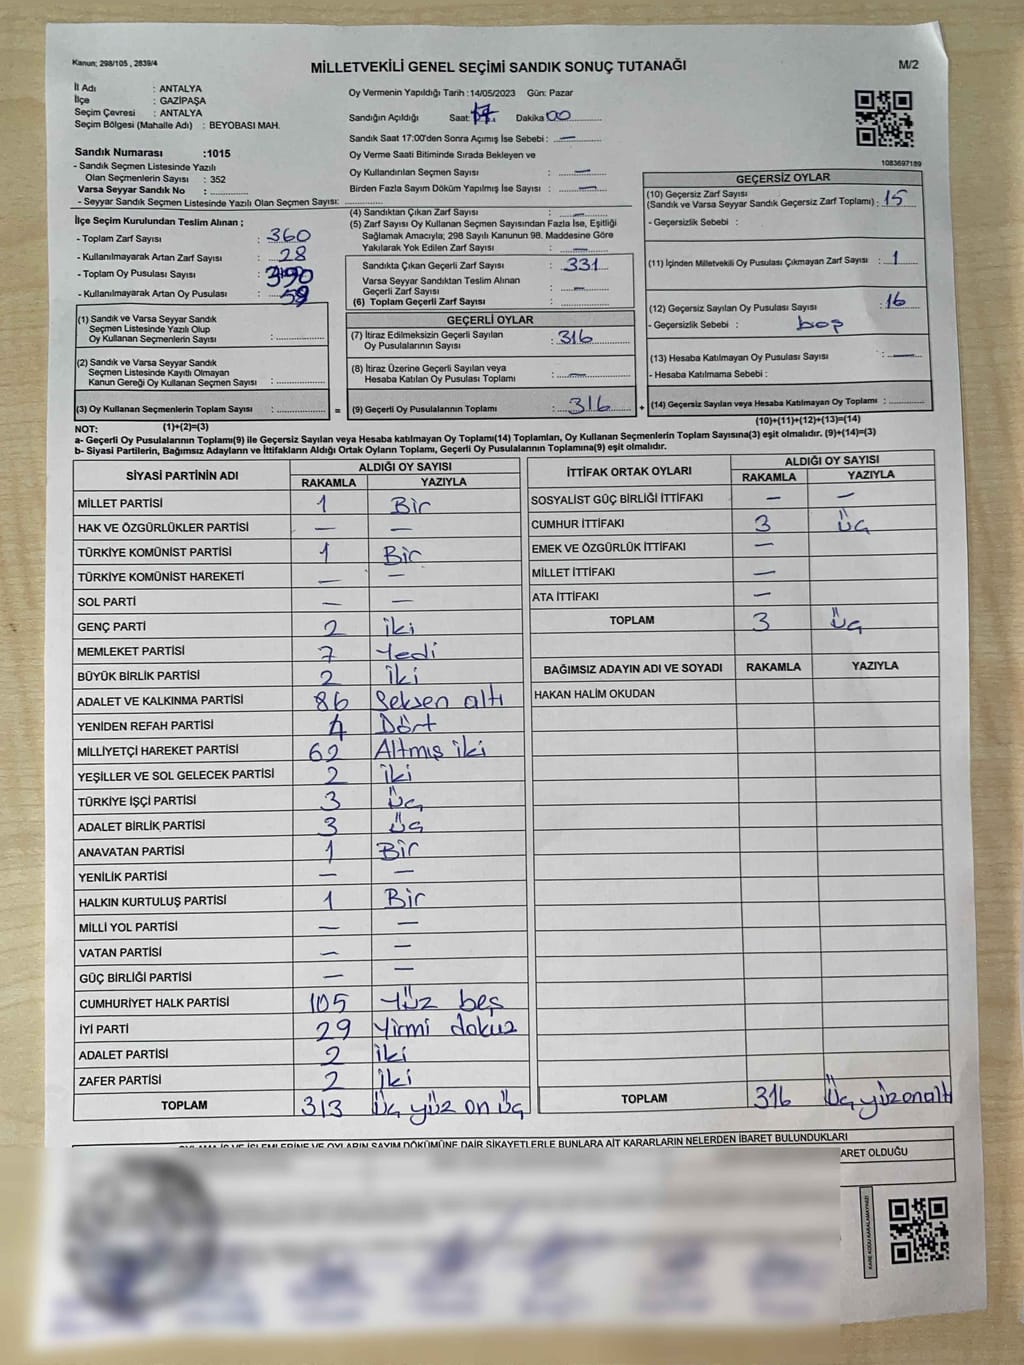 Kanun; 298/105 , 2839/4
MİLLETVEKİLİ GENEL SEÇİMİ SANDIK SONUÇ TUTANAĞI
M/2
İl Adı : ANTALYA
İlçe : GAZİPAŞA
Seçim Çevresi : ANTALYA
Seçim Bölgesi (Mahalle Adı) : BEYOBASI MAH.
Sandık Numarası :1015
- Sandık Seçmen Listesinde Yazılı
Olan Seçmen Sayısı : 352
Varsa Seyyar Sandık No :
- Seyyar Sandık Seçmen Listesinde Yazılı Olan Seçmen Sayısı:
Oy Vermenin Yapıldığı Tarih :14/05/2023 Gün: Pazar
Sandığın Açıldığı Saat: 17 Dakika 00
Sandık Saat 17:00'den Sonra Açımış İse Sebebi : —
Oy Verme Saati Bitiminde Sırada Bekleyen ve
Oy Kullandırılan Seçmen Sayısı : —
Birden Fazla Sayım Döküm Yapılmış İse Sayısı : —
1083697189
İlçe Seçim Kurulundan Teslim Alınan ;
- Toplam Zarf Sayısı : 360
- Kullanılmayarak Artan Zarf Sayısı : 28
- Toplam Oy Pusulası Sayısı : 390
- Kullanılmayarak Artan Oy Pusulası : 59
(1) Sandık ve Varsa Seyyar Sandık
Seçmen Listesinde Yazılı Olup
Oy Kullanan Seçmenlerin Sayısı :
(2) Sandık ve Varsa Seyyar Sandık
Seçmen Listesinde Kayıtlı Olmayan
Kanun Gereği Oy Kullanan Seçmen Sayısı :
(3) Oy Kullanan Seçmenlerin Toplam Sayısı :
(4) Sandıktan Çıkan Zarf Sayısı : —
(5) Zarf Sayısı Oy Kullanan Seçmen Sayısından Fazla İse, Eşitliği
Sağlamak Amacıyla; 298 Sayılı Kanunun 98. Maddesine Göre
Yakılarak Yok Edilen Zarf Sayısı : —
Sandıkta Çıkan Geçerli Zarf Sayısı : 331
Varsa Seyyar Sandıktan Teslim Alınan
Geçerli Zarf Sayısı : —
(6) Toplam Geçerli Zarf Sayısı :
GEÇERLİ OYLAR
(7) İtiraz Edilmeksizin Geçerli Sayılan
Oy Pusulalarının Sayısı : 316
(8) İtiraz Üzerine Geçerli Sayılan veya
Hesaba Katılan Oy Pusulası Toplamı : —
= (9) Geçerli Oy Pusulalarının Toplamı : 316 +
GEÇERSİZ OYLAR
(10) Geçersiz Zarf Sayısı
(Sandık ve Varsa Seyyar Sandık Geçersiz Zarf Toplamı) : 15
- Geçersizlik Sebebi :
(11) İçinden Milletvekili Oy Pusulası Çıkmayan Zarf Sayısı : 1
(12) Geçersiz Sayılan Oy Pusulası Sayısı : 16
- Geçersizlik Sebebi : boş
(13) Hesaba Katılmayan Oy Pusulası Sayısı : —
- Hesaba Katılmama Sebebi :
(14) Geçersiz Sayılan veya Hesaba Katılmayan Oy Toplamı :
NOT: (1)+(2)=(3)
(10)+(11)+(12)+(13)=(14)
a- Geçerli Oy Pusulalarının Toplamı(9) ile Geçersiz Sayılan veya Hesaba katılmayan Oy Toplamı(14) Toplamları, Oy Kullanan Seçmenlerin Toplam Sayısına(3) eşit olmalıdır. (9)+(14)=(3)
b- Siyasi Partilerin, Bağımsız Adayların ve İttifakların Aldığı Ortak Oyların Toplamı, Geçerli Oy Pusulalarının Toplamına(9) eşit olmalıdır.
SİYASİ PARTİNİN ADI ALDIĞI OY SAYISI
RAKAMLA YAZIYLA
MİLLET PARTİSİ 1 Bir
HAK VE ÖZGÜRLÜKLER PARTİSİ — —
TÜRKİYE KOMÜNİST PARTİSİ 1 Bir
TÜRKİYE KOMÜNİST HAREKETİ — —
SOL PARTİ — —
GENÇ PARTİ 2 iki
MEMLEKET PARTİSİ 7 Yedi
BÜYÜK BİRLİK PARTİSİ 2 iki
ADALET VE KALKINMA PARTİSİ 86 Seksen altı
YENİDEN REFAH PARTİSİ 4 Dört
MİLLİYETÇİ HAREKET PARTİSİ 62 Altmış iki
YEŞİLLER VE SOL GELECEK PARTİSİ 2 iki
TÜRKİYE İŞÇİ PARTİSİ 3 Üç
ADALET BİRLİK PARTİSİ 3 Üç
ANAVATAN PARTİSİ 1 Bir
YENİLİK PARTİSİ — —
HALKIN KURTULUŞ PARTİSİ 1 Bir
MİLLİ YOL PARTİSİ — —
VATAN PARTİSİ — —
GÜÇ BİRLİĞİ PARTİSİ — —
CUMHURİYET HALK PARTİSİ 105 Yüz beş
İYİ PARTİ 29 Yirmi dokuz
ADALET PARTİSİ 2 iki
ZAFER PARTİSİ 2 iki
TOPLAM 313 Üç yüz on üç
İTTİFAK ORTAK OYLARI ALDIĞI OY SAYISI
RAKAMLA YAZIYLA
SOSYALİST GÜÇ BİRLİĞİ İTTİFAKI — —
CUMHUR İTTİFAKI 3 Üç
EMEK VE ÖZGÜRLÜK İTTİFAKI —
MİLLET İTTİFAKI —
ATA İTTİFAKI —
TOPLAM 3 Üç
BAĞIMSIZ ADAYIN ADI VE SOYADI RAKAMLA YAZIYLA
HAKAN HALİM OKUDAN
TOPLAM 316 Üç yüz on altı
OYLAMA İŞ VE İŞLEMLERİNE VE OYLARIN SAYIM DÖKÜMÜNE DAİR ŞİKAYETLERLE BUNLARA AİT KARARLARIN NELERDEN İBARET BULUNDUKLARI
ARET OLDUĞU